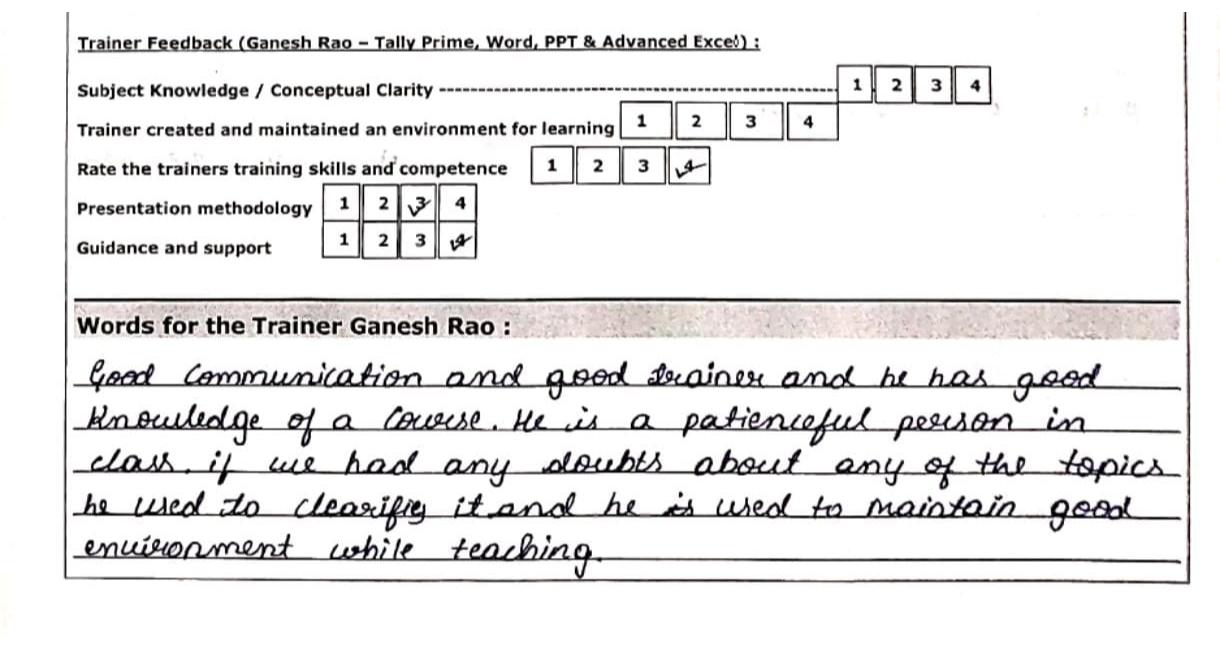 Trainer Feedback (Ganesh Rao – Tally Prime, Word, PPT & Advanced Excel) :
Subject Knowledge / Conceptual Clarity ---------------------------------------------------- 1 2 3 4
Trainer created and maintained an environment for learning 1 2 3 4
Rate the trainers training skills and competence 1 2 3 4
Presentation methodology 1 2 3 4
Guidance and support 1 2 3 4
Words for the Trainer Ganesh Rao :
Good Communication and good trainer and he has good
knowledge of a Course. He is a patienceful person in
class. if we had any doubts about any of the topics
he used to clearifiy it and he is used to maintain good
environment while teaching.